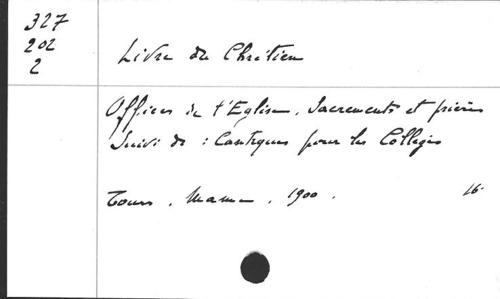 327
202
2
Livre du Chrétien
Offices de l'Eglise. Sacrements et prières
Suivi de : Cantiques pour les Collèges
Tours. Mame. 1900. 16.